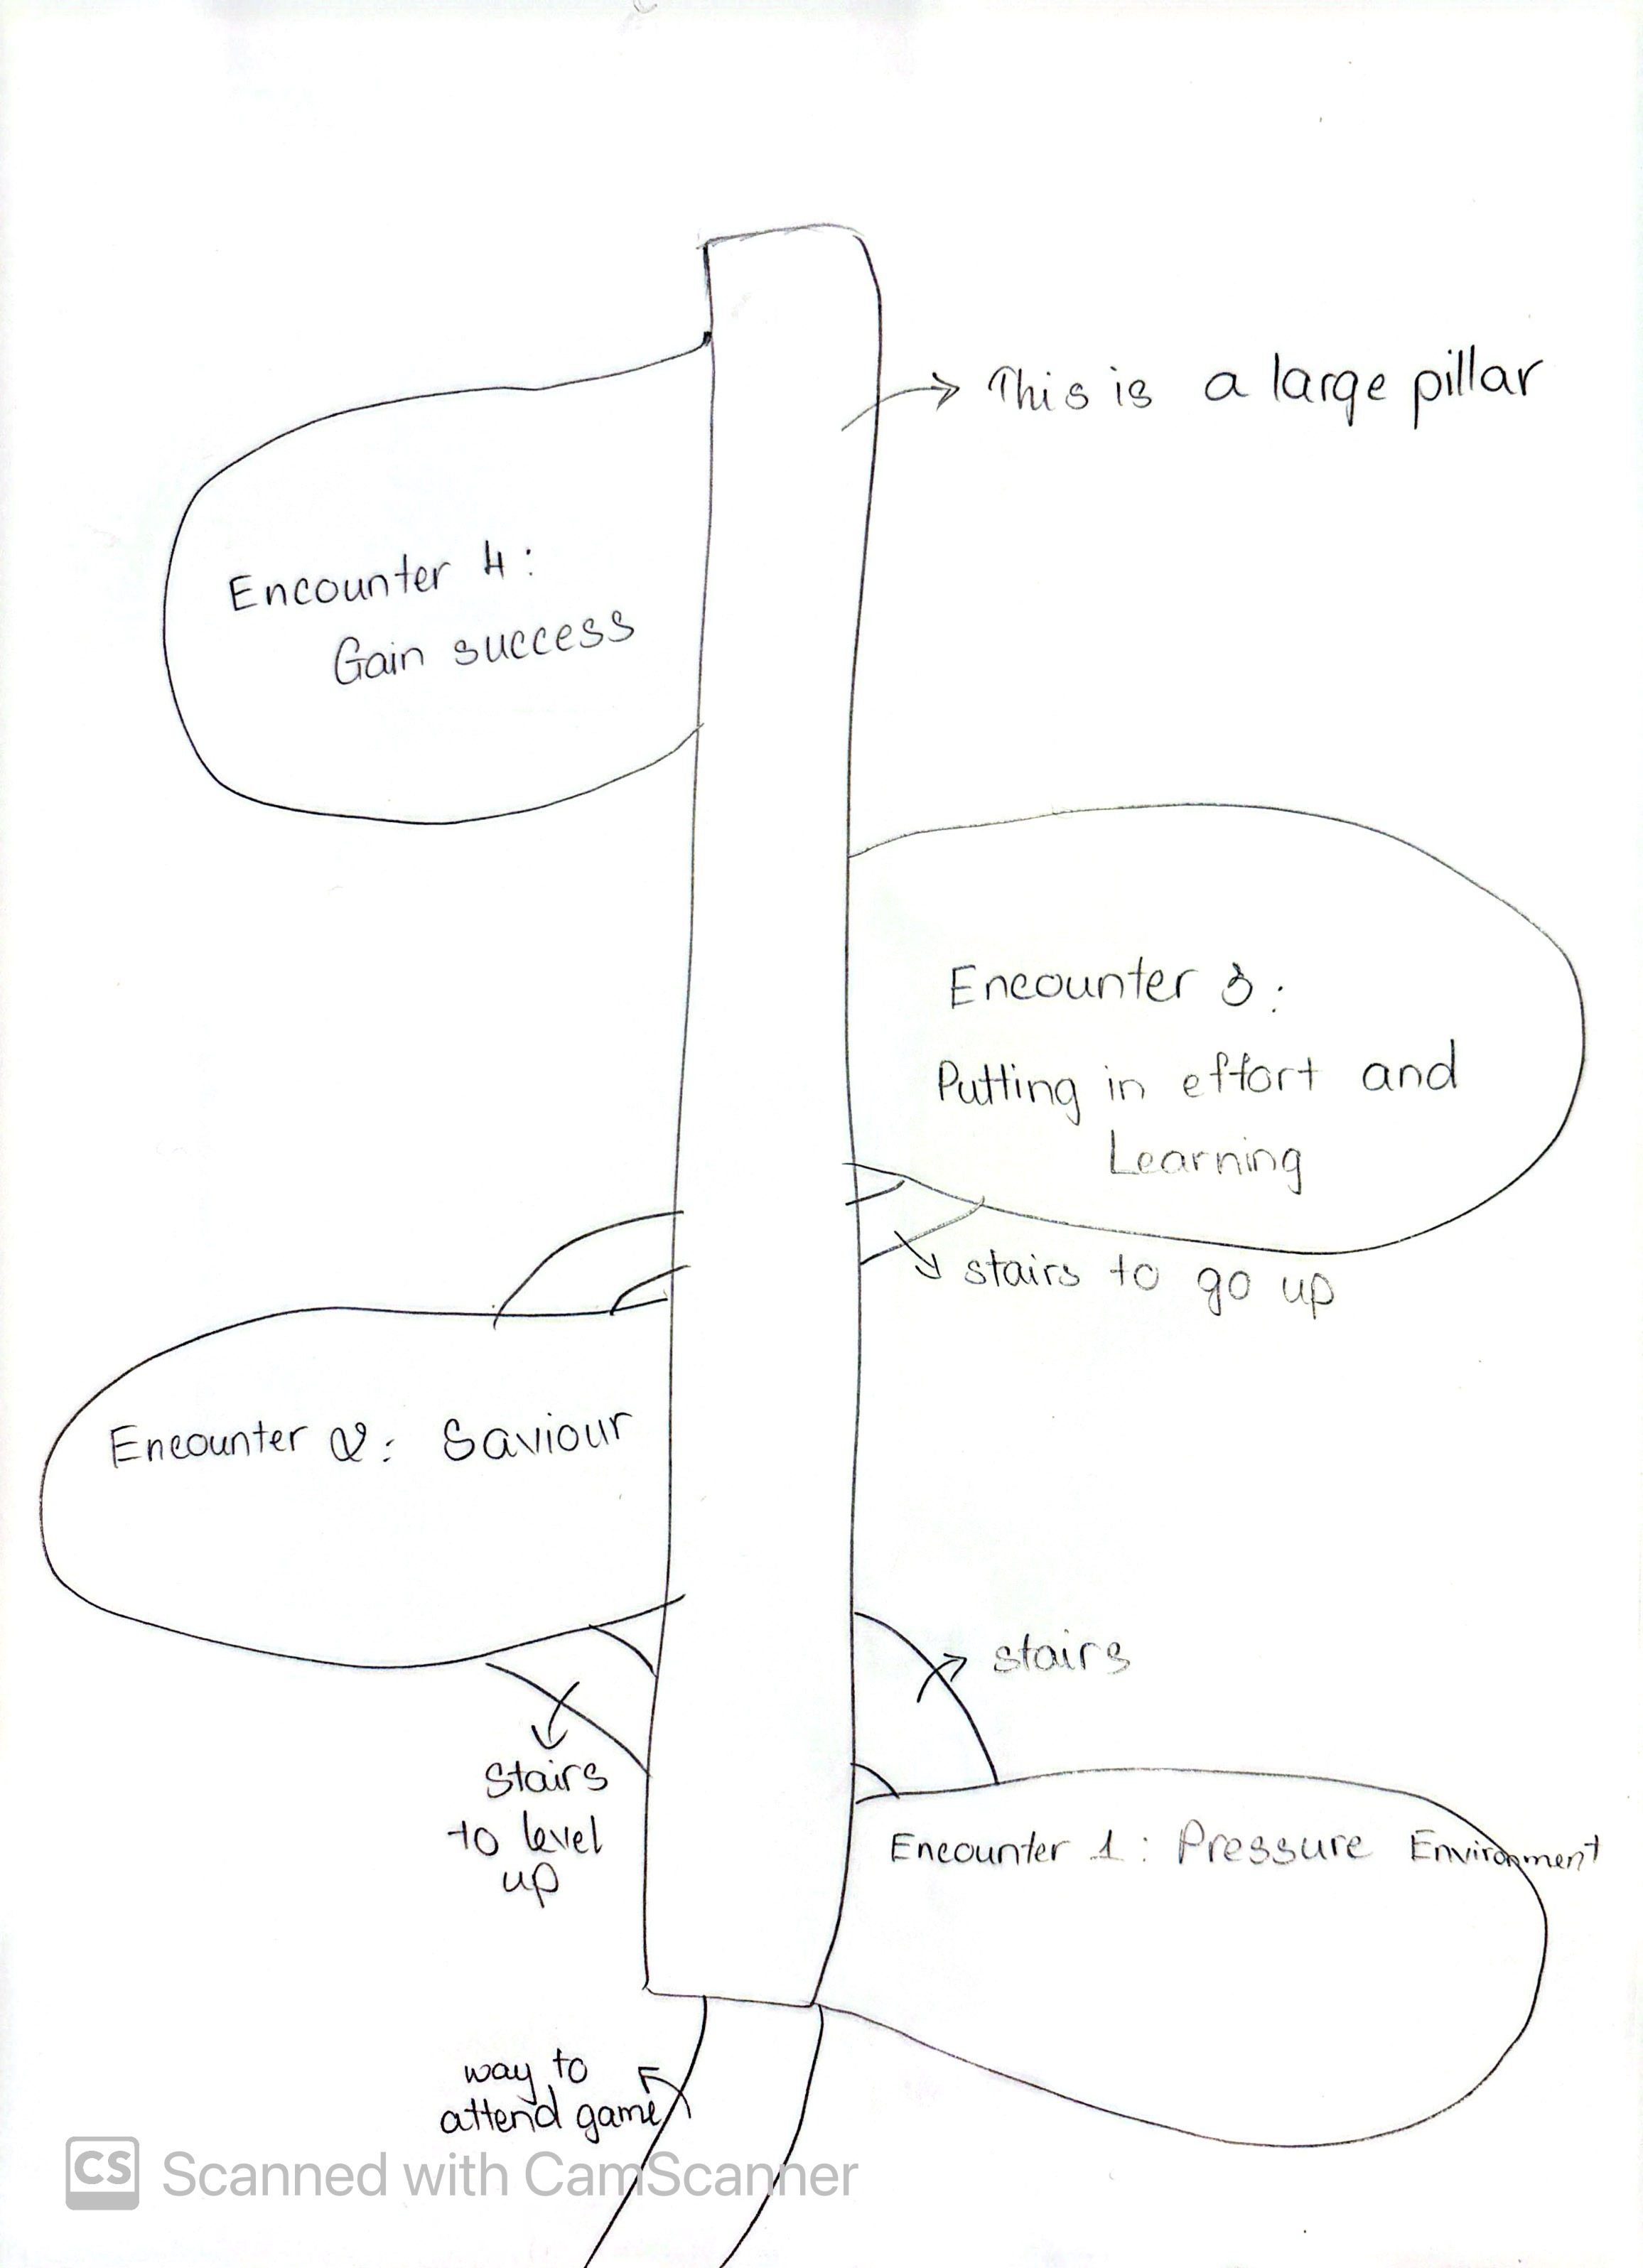 This is a large pillar
Encounter 4:
Gain success
Encounter 3:
Putting in effort and
Learning
stairs to go up
Encounter 2: Saviour
stairs
Stairs
to level
up
Encounter 1: Pressure Environment
way to
attend game
CS Scanned with CamScanner